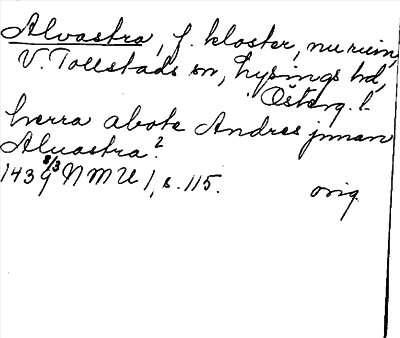 Alvastra, f. kloster, nu ruin,
V. Tollstads sn, Lysings hd,
Österg. l.
herra abote Andres jnnan
Aluastra?
1439 8/3 NMU 1, s. 115. orig